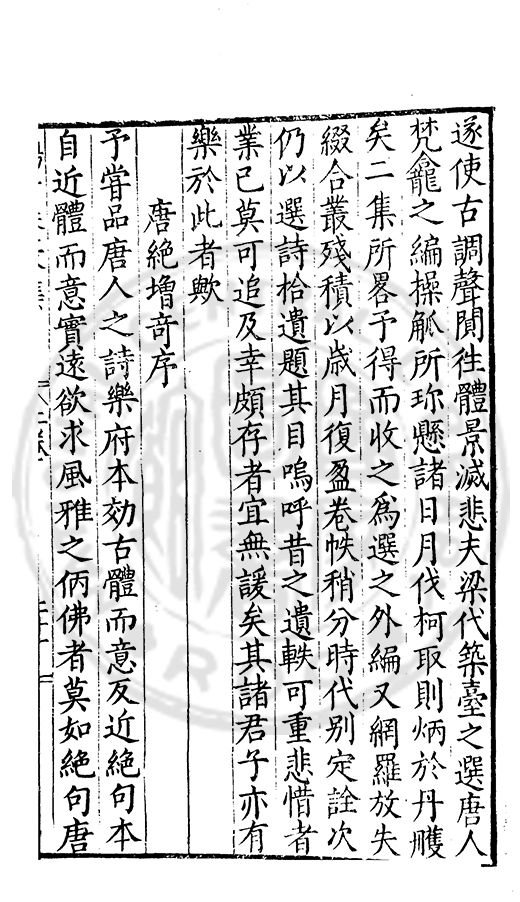 遂使古調聲閴徃體景滅悲夫梁代築臺之選唐人
梵龕之編操觚所珎懸諸日月伐柯取則炳於丹雘
矣二集所畧予得而收之爲選之外編又網羅放失
綴合叢殘積以歲月復盈卷帙稍分時代别定詮次
仍以選詩拾遺題其目嗚呼昔之遺軼可重悲惜者
業已莫可追及幸頗存者宜無諼矣其諸君子亦有
樂於此者歟
唐絶增竒序
予嘗品唐人之詩樂府本効古體而意反近絶句本
自近體而意實遠欲求風雅之仿佛者莫如絶句唐